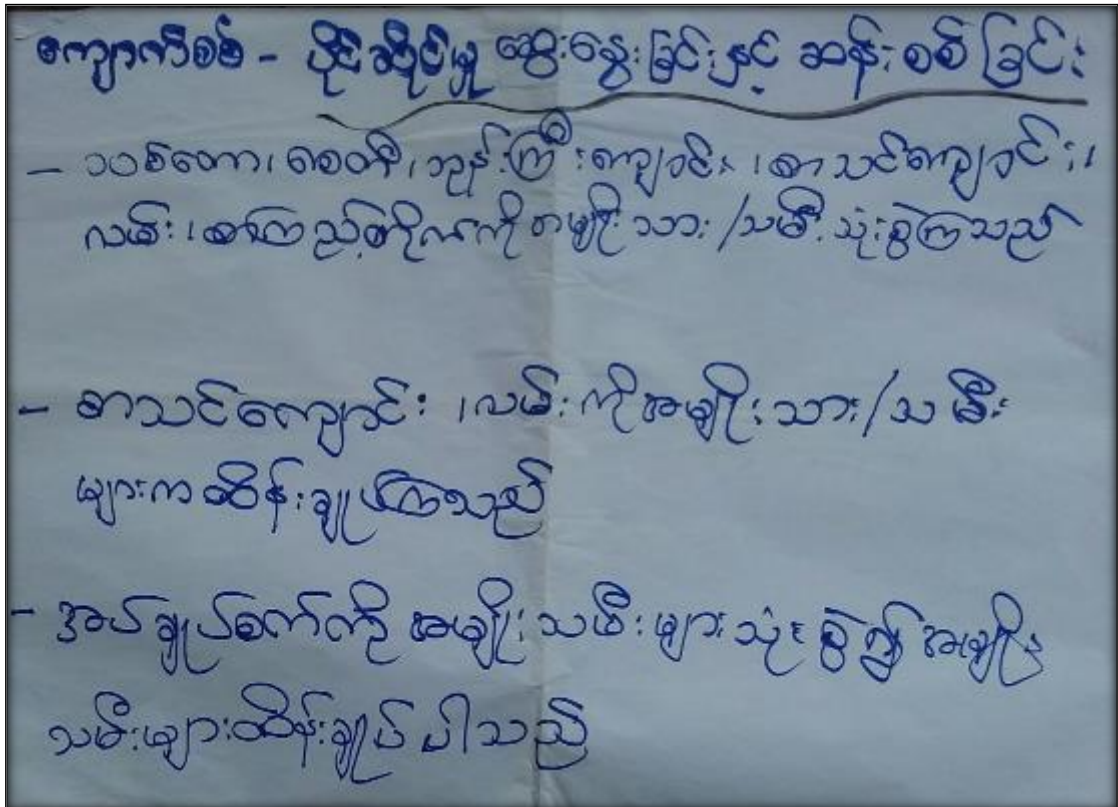 ကျောက်စစ် - ပိုင်ဆိုင်မှု ဆွေးနွေးခြင်းနှင့် ဆန်းစစ်ခြင်း
- သစ်တော၊ စေတီ၊ ဘုန်းကြီးကျောင်း၊ စာသင်ကျောင်း၊
လမ်း၊ စာကြည့်တိုက်ကို အမျိုးသား/သမီး သုံးစွဲကြသည်
- စာသင်ကျောင်း၊ လမ်းကိုအမျိုးသား/သမီး
များကထိန်းချုပ်ကြသည်
- အပ်ချုပ်စက်ကို အမျိုးသမီးများသုံးစွဲ၍ အမျိုး
သမီးများထိန်းချုပ်ပါသည်